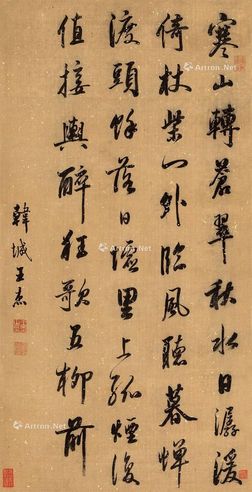 寒山轉蒼翠秋水日潺湲
倚杖柴門外臨風聽暮蟬
渡頭餘落日墟里上孤煙復
值接輿醉狂歌五柳前
韓城王杰
Artron.Net
Artron.Net
Artron.Net
Artron.Net